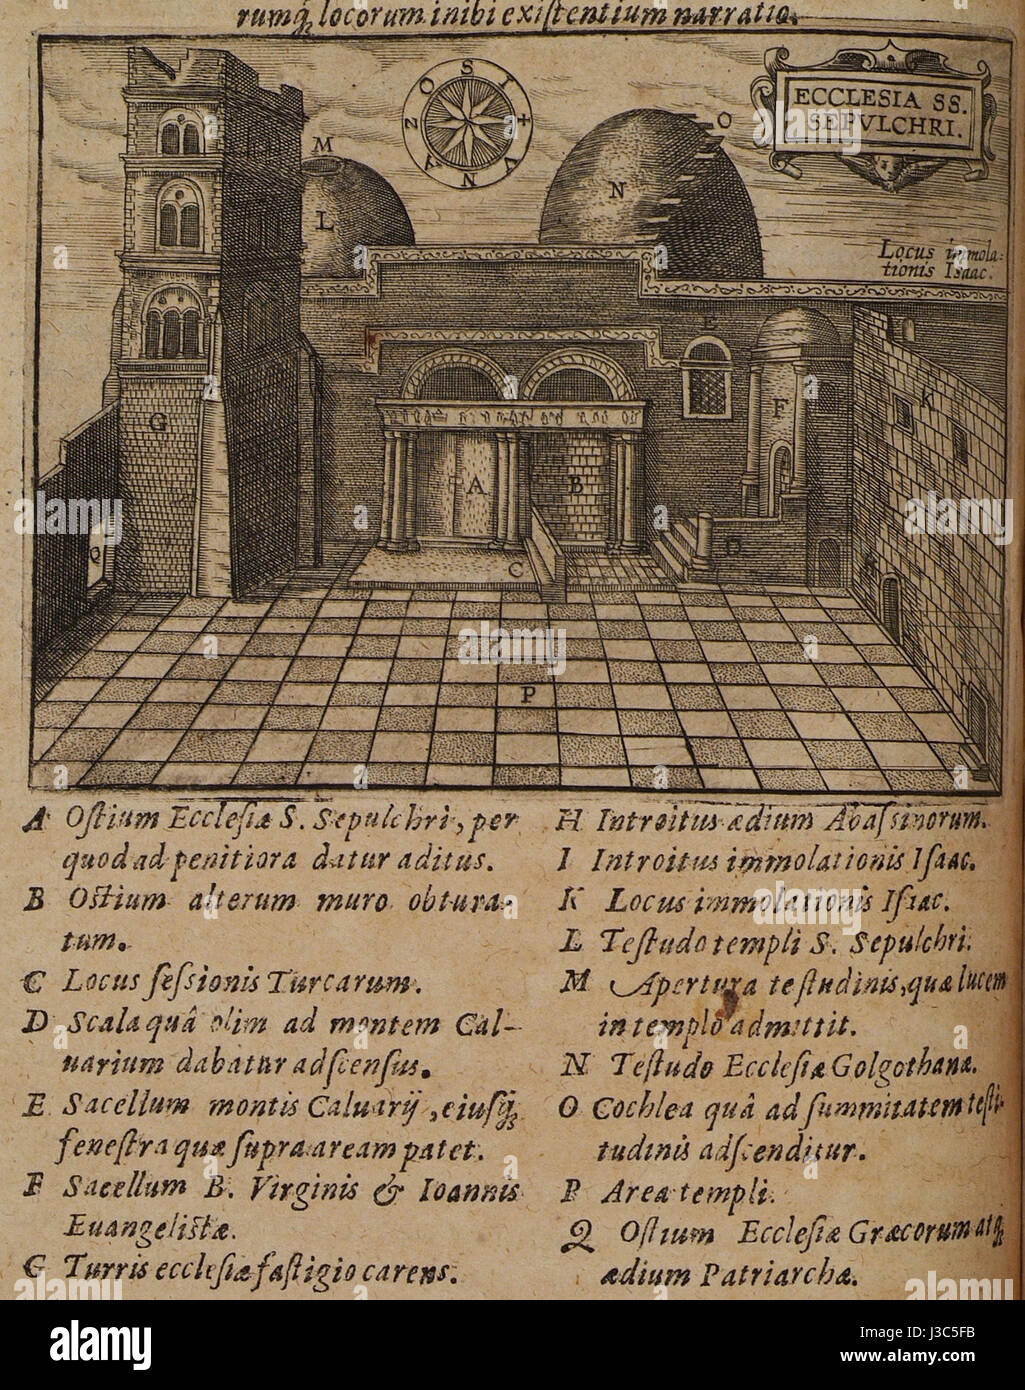 rumq́; locorum inibi exiſtentium narratio.
ECCLESIA SS.
SEPVLCHRI.
Locus immola-
tionis Isaac.
O S I + V N A Z
M
L
N
O
E
F
K
G
A
B
C
D
H
I
Q
P
A Oſtium Ecclesiæ S. Sepulchri, per
quod ad penitiora datur aditus.
B Oſtium alterum muro obtura-
tum.
C Locus ſeſsionis Turcarum.
D Scala quâ olim ad montem Cal-
uarium dabatur adſcenſus.
E Sacellum montis Caluarij, eiuſq́;
feneſtra quæ ſupra aream patet.
F Sacellum B. Virginis & Ioannis
Euangeliſtæ.
G Turris eccleſiæ faſtigio carens.
H Introitus ædium Abaſsinorum.
I Introitus immolationis Iſaac.
K Locus immolationis Iſaac.
L Teſtudo templi S. Sepulchri.
M Apertura teſtudinis, quæ lucem
in templo admittit.
N Teſtudo Eccleſiæ Golgothanæ.
O Cochlea quâ ad ſummitatem teſti-
tudinis adſcenditur.
P Area templi.
Q Oſtium Eccleſiæ Græcorum atq́;
ædium Patriarchæ.
alamy
Image ID: J3C5FB
www.alamy.com